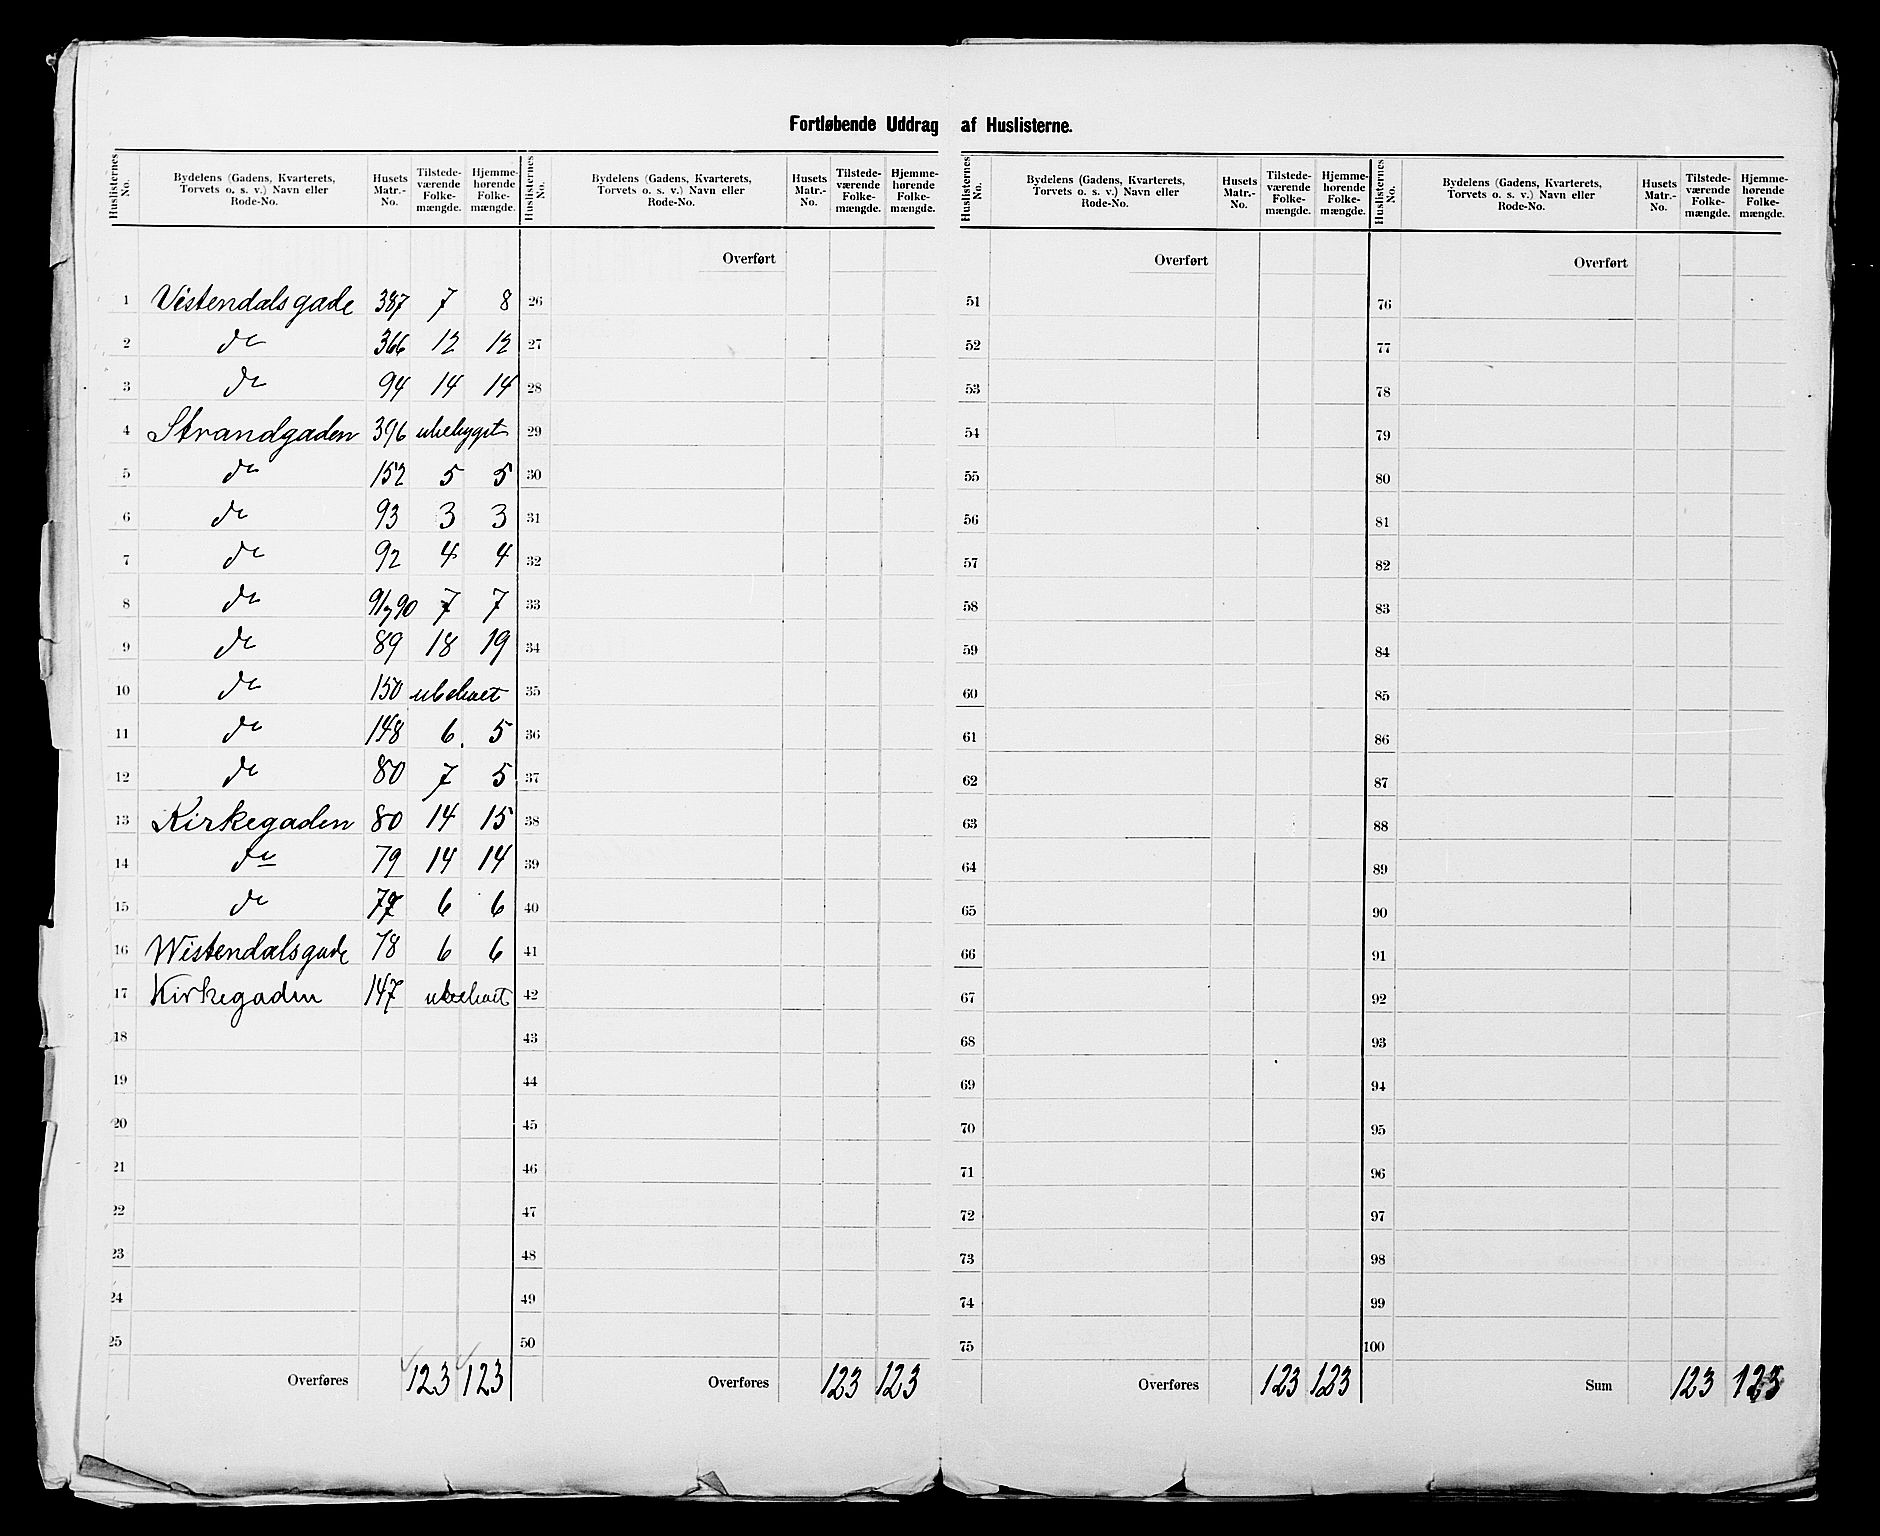 Fortløbende Uddrag af Huslisterne.
Huslisternes No. Bydelens (Gadens, Kvarterets, Torvets o. s. v.) Navn eller Rode-No. Husets Matr.-No. Tilstede-værende Folke-mængde. Hjemme-hørende Folke-mængde.
1 Vistendalsgade 387 7 8
2 do 366 12 12
3 do 94 14 14
4 Strandgaden 396 ubebygst
5 do 152 5 5
6 do 93 3 3
7 do 92 4 4
8 do 91, 90 7 7
9 do 89 18 19
10 do 150 ubeboet
11 do 148 6. 5
12 do 80 7 5
13 Kirkegaden 80 14 15
14 do 79 14 14
15 do 77 6 6
16 Wistendalsgade 78 6 6
17 Kirkegaden 147 ubeboet
18
19
20
21
22
23
24
25
Overføres 123 123
Huslisternes No. Bydelens (Gadens, Kvarterets, Torvets o. s. v.) Navn eller Rode-No. Husets Matr.-No. Tilstede-værende Folke-mængde. Hjemme-hørende Folke-mængde.
Overført
26
27
28
29
30
31
32
33
34
35
36
37
38
39
40
41
42
43
44
45
46
47
48
49
50
Overføres 123 123
Huslisternes No. Bydelens (Gadens, Kvarterets, Torvets o. s. v.) Navn eller Rode-No. Husets Matr.-No. Tilstede-værende Folke-mængde. Hjemme-hørende Folke-mængde.
Overført
51
52
53
54
55
56
57
58
59
60
61
62
63
64
65
66
67
68
69
70
71
72
73
74
75
Overføres 123 123
Huslisternes No. Bydelens (Gadens, Kvarterets, Torvets o. s. v.) Navn eller Rode-No. Husets Matr.-No. Tilstede-værende Folke-mængde. Hjemme-hørende Folke-mængde.
Overført
76
77
78
79
80
81
82
83
84
85
86
87
88
89
90
91
92
93
94
95
96
97
98
99
100
Sum 123 123